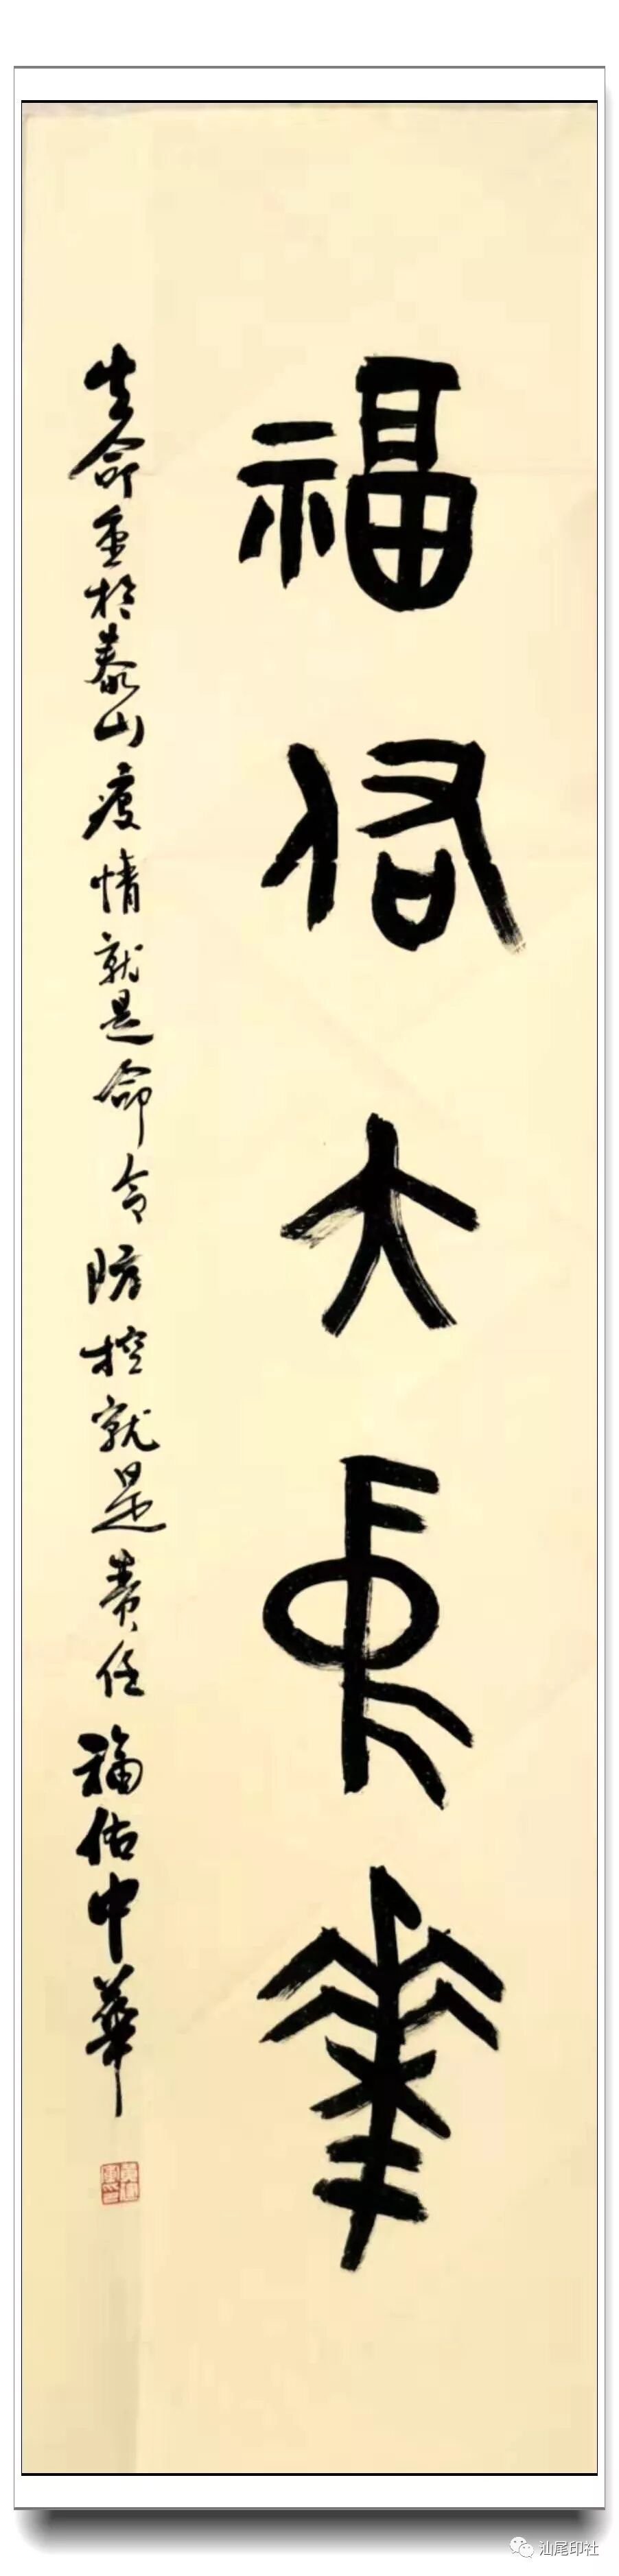 福佑大中華
生命重於泰山疫情就是命令防控就是責任福佑中華
汕尾印社